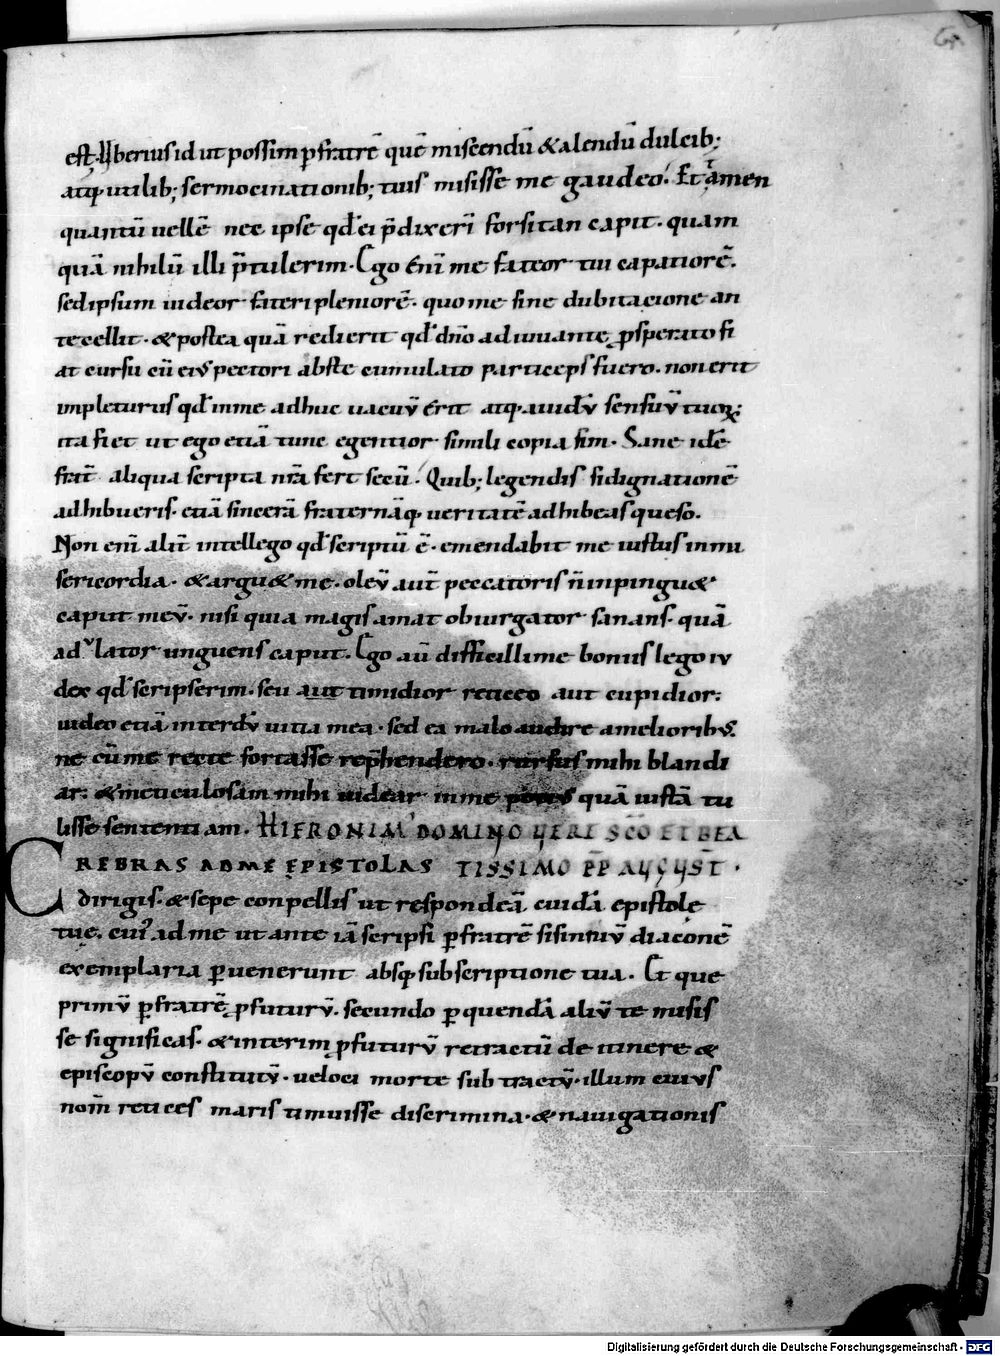 est. Uberius id ut possim p̄ fratrē quē miscendū & alendū dulcib;
atq; utilib; sermocinationib; tuis misisse me gaudeo. Et tamen
quantū uellē nec ipse qđ ei p̄dixerī forsitan capit. quam
quā nihilū illi p̄tulerim. Ego enī me fateor tui capatiorē.
sed ipsum uideor fateri pleniorē. quo me sine dubitacione an
tecellit. & postea quā redierit qđ dn̄o adiuuante, ꝓsperato fi
at cursu cū eiꝰ pectori abste cumulato particeps fuero. non erit
impleturus qđ in me adhuc uacuū erit atq; auidū sensuū tuoꝝ;
ita fiet ut ego etiā tunc egentior simili copia sim. Sane idē
frat̄ aliqua scripta nr̄a fert secū. Quib; legendis si dignationē
adhibueris. etiā sincerā fraternāq; ueritatē adhibeas queso.
Non enī alit̄ intellego qđ scriptū ē. emendabit me iustus in mi
sericordia. & argu& me. oleū aut̄ peccatoris n̄ inpingu&
caput meū. nisi quia magis amat obiurgator sanans. quā
adulator unguens caput. Ego aū difficillime bonus lego iu
dex qđ scripserim. seu aut timidior recteo aut cupidior:
uideo etiā interdū uitia mea. sed ea malo audire a melioribꝰ.
ne cū me recte fortasse rep̄hendero. rursus mihi blandi
ar. & meticulosam mihi uidear in me quā iustā tu
lisse sententiam. HIERONIM' DOMINO UERE SCO ET BEA
CREBRAS AD ME EPISTOLAS TISSIMO P̄P̄ AUGUST̄.
dirigis. & sepe conpellis ut respondeā cuidā epistole
tuę. cuiꝰ ad me ut ante iā scripsi ꝑ fratrē sisinniū diaconē
exemplaria ꝑuenerunt absq; subscriptione tua. Et que
primū ꝑ fratrē ꝓfuturū. secundo ꝑ quendā aliū te misis
se significas. & interim ꝓfuturū retractū de itinere &
episcopū constitutū. ueloci morte subtractū. illum cuius
nom̄ retices maris timuisse discrimina. & nauigationis
Digitalisierung gefördert durch die Deutsche Forschungsgemeinschaft - DFG